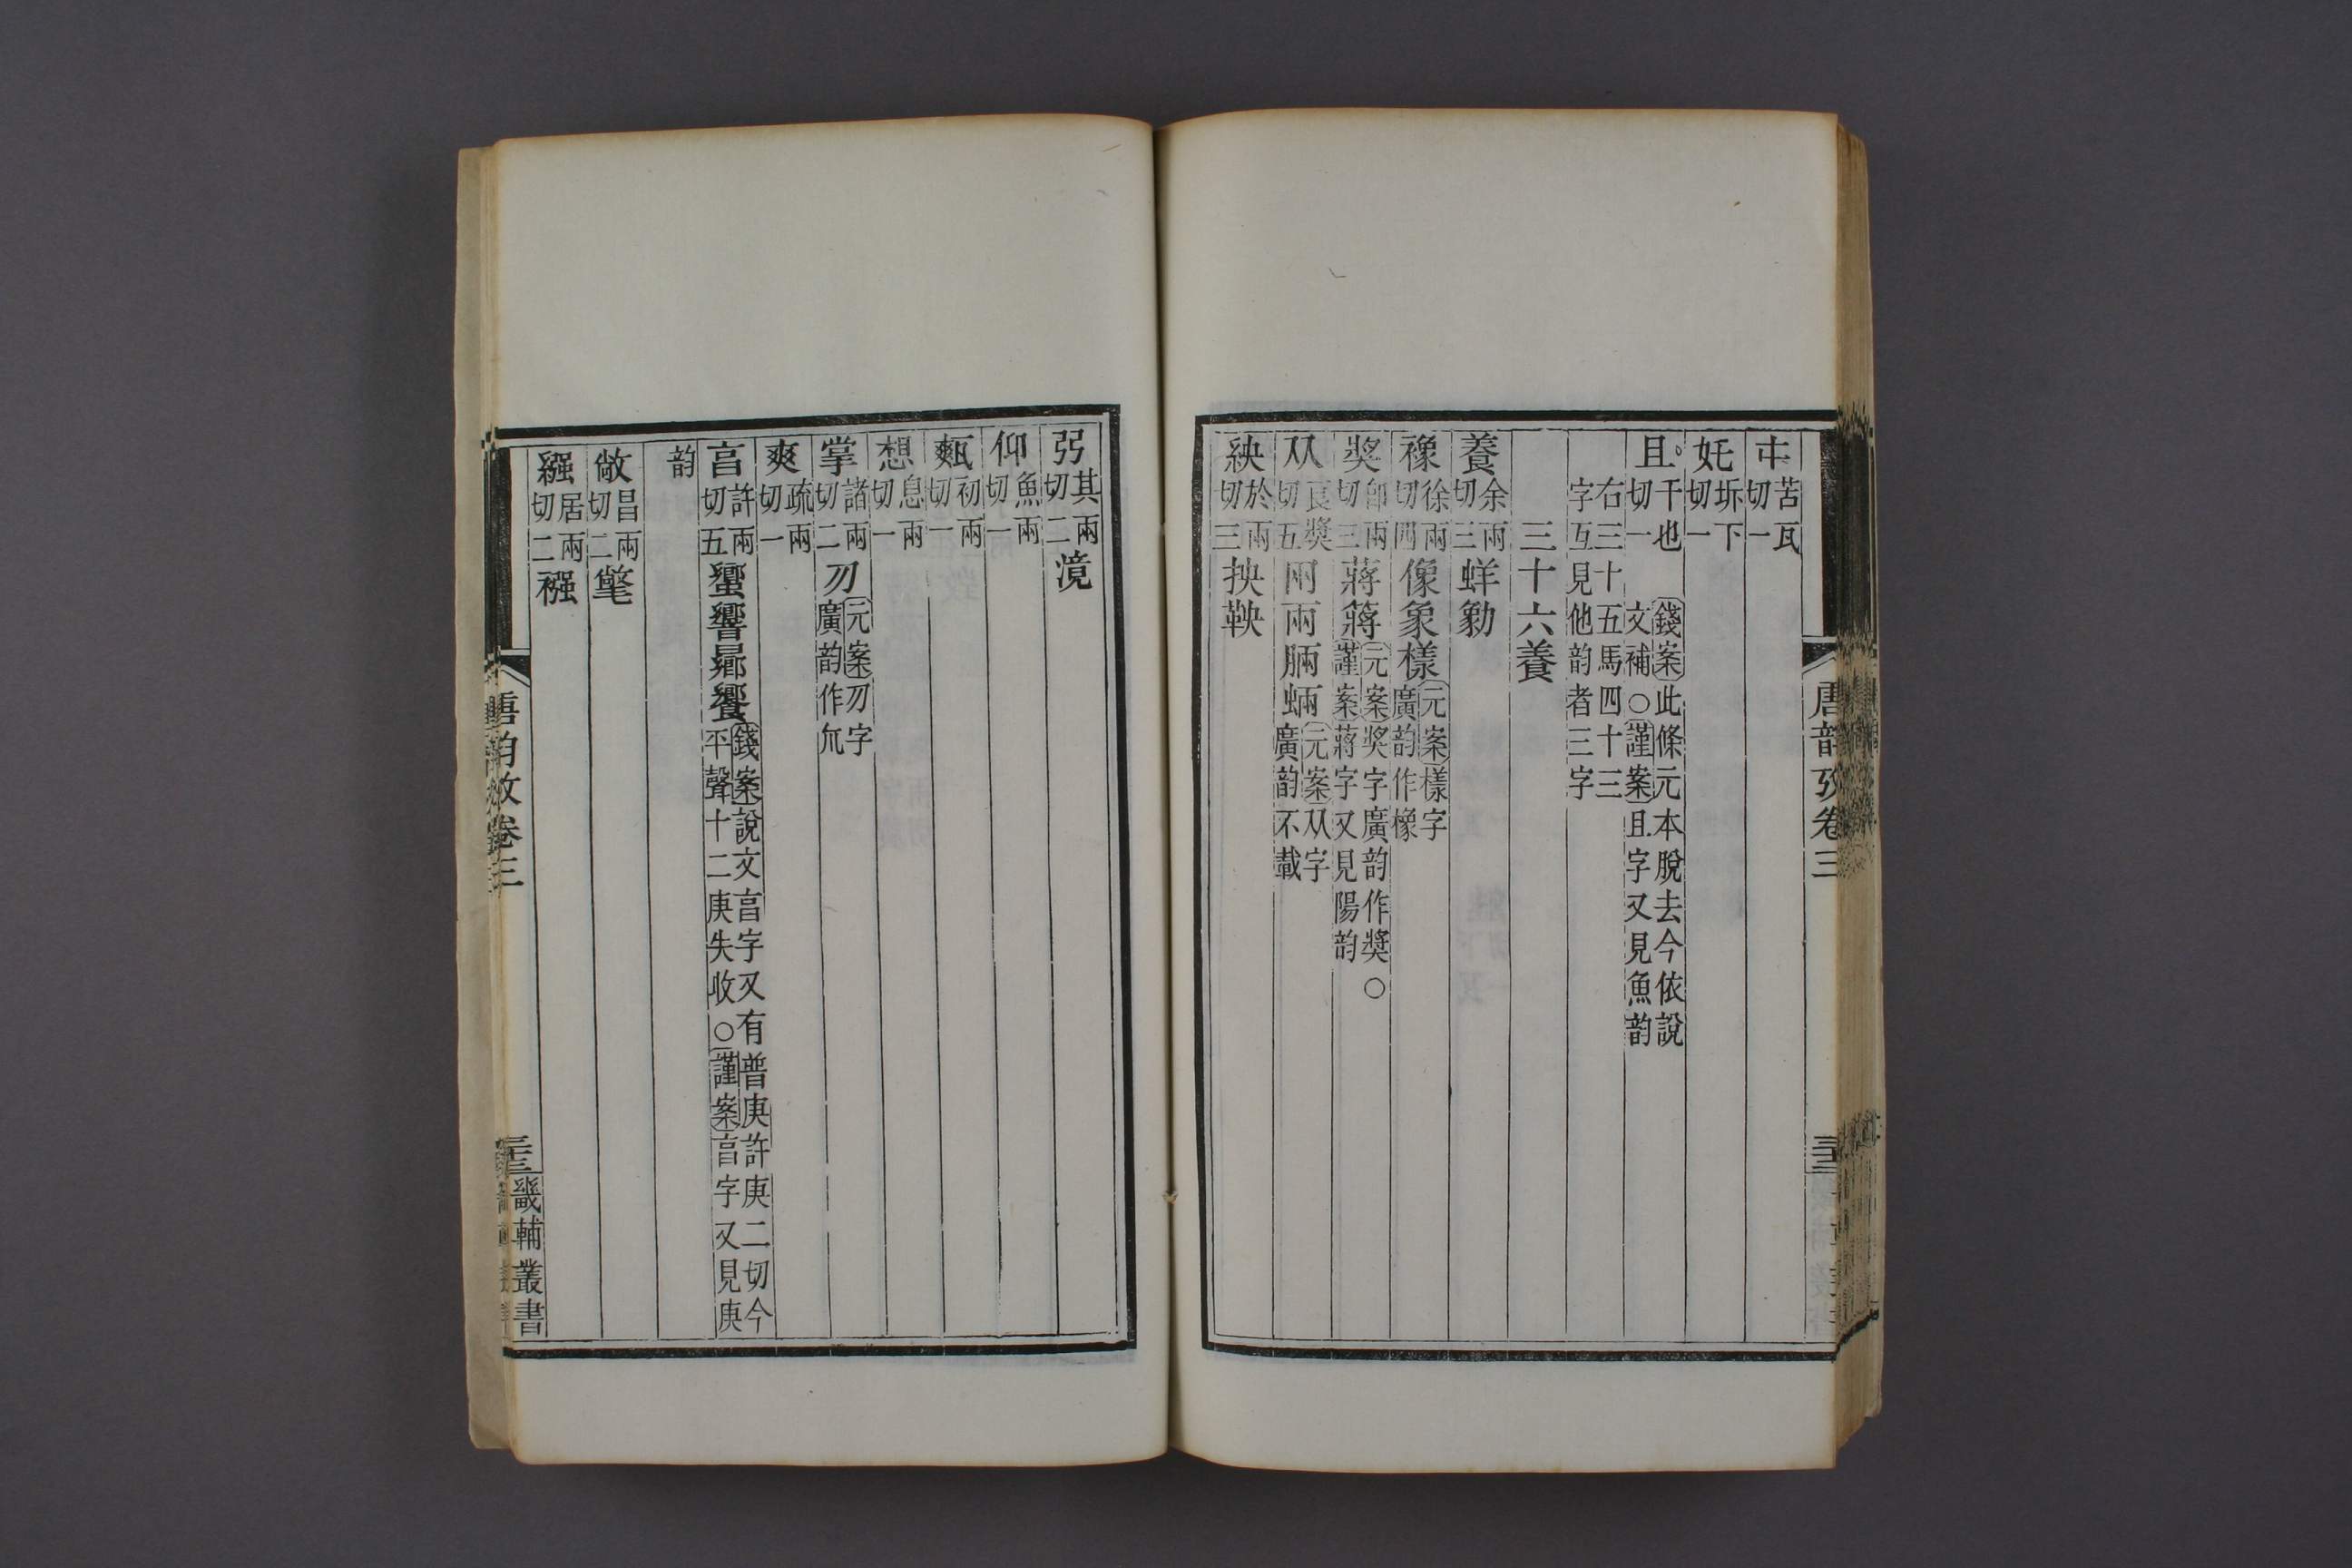 唐韵攷卷三
𠁥苦瓦切一
奼坼下切一
且千也切一 錢案此條元本脫去今依說文補○謹案且字又見魚韵
右三十五馬四十三字互見他韵者三字
三十六養
養余兩切三蛘勨
豫徐兩切四像象樣元案樣字廣韵作橡
奬卽兩切三蔣䉃元案奬字廣韵作獎○謹案蔣字又見陽韵
从良獎切五㒳兩脼蛃元案从字廣韵不載
紻於兩切三抰鞅
弜其兩切二滰
仰魚兩切一
㼽初兩切一
想息兩切一
掌諸兩切二爪元案爪字廣韵作𠃨
爽疏兩切一
亯許兩切五蠁響曏饗錢案說文亯字又有普庚許庚二切今平聲十二庚失收○謹案亯字又見庚
韵
敞昌兩切二氅
繦居兩切二襁
唐韵攷卷三
畿輔叢書